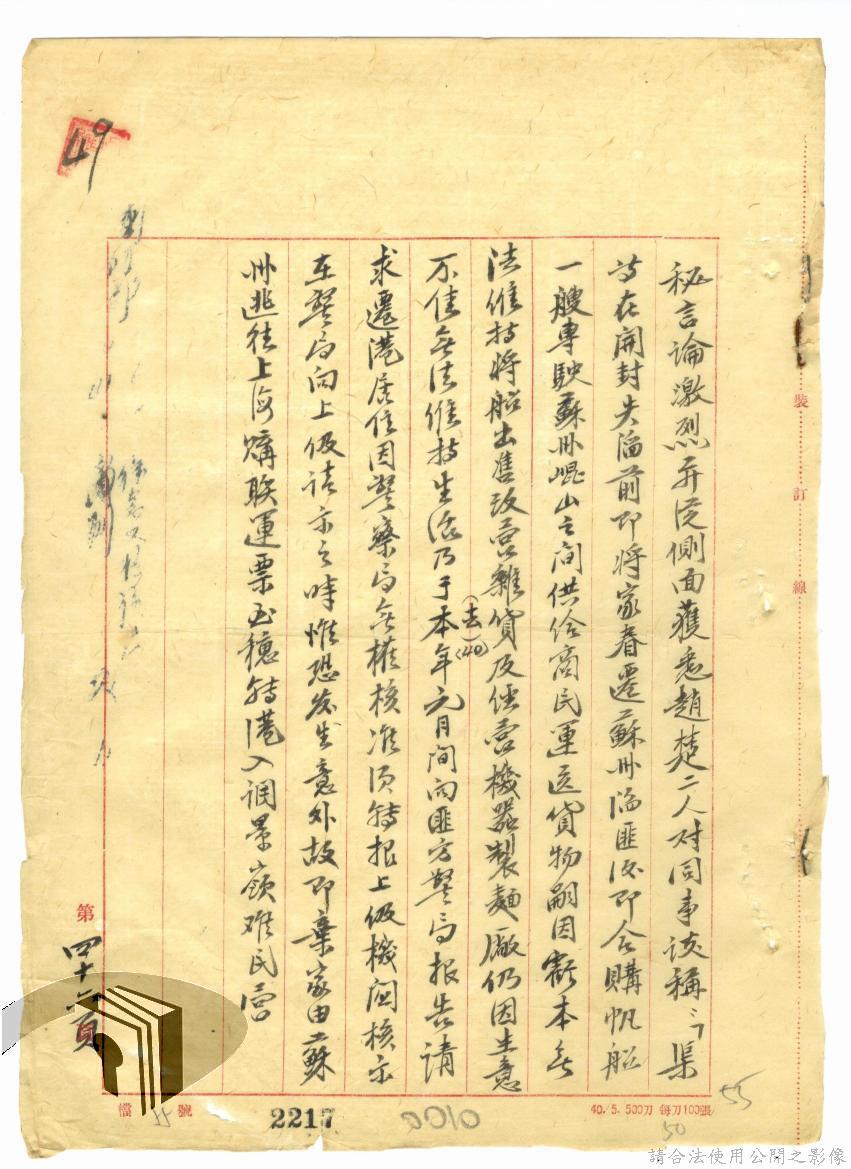 秘言論激烈並從側面獲悉趙楚二人对同事談稱：「渠
等在開封失陷前即將家眷遷蘇州陷匪后即合購帆船
一艘專駛蘇州崑山之间供给商民運送貨物嗣因虧本無
法維持将船出售改营雜貨及经营機器製麵廠仍因生意
不佳無法維持生活乃于本年(去)(40)元月间向匪方警局报告請
求遷港居住因警察局無權核准須轉报上级機関核示
在警局向上级請示之時惟恐发生意外故即棄家由蘇
州逃往上海購联運票至穗轉港入調景嶺难民营
第四十六頁
49
檔
號
2217
0100
40./5. 500刀 每刀100張
55
50
裝
訂
線
請合法使用公開之影像